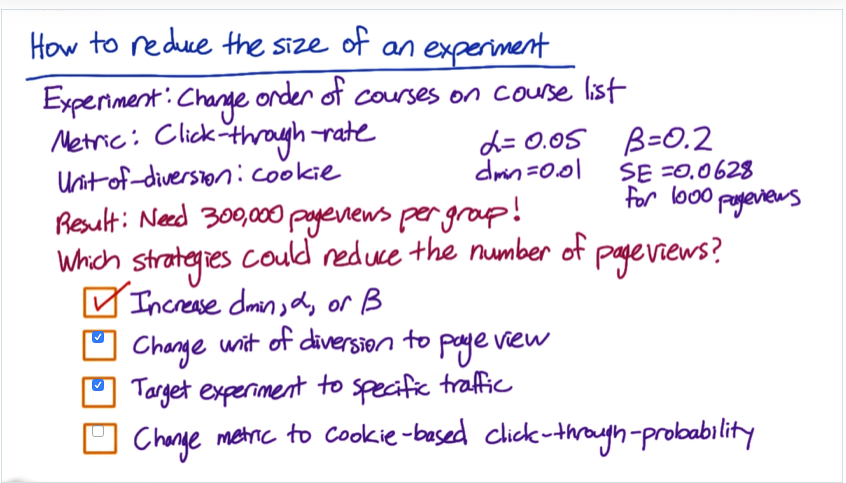 How to reduce the size of an experiment
Experiment: Change order of courses on course list
Metric: Click-through-rate
α= 0.05 β=0.2
Unit-of-diversion: cookie
dmin=0.01 SE =0.0628
for 1000 pageviews
Result: Need 300,000 pageviews per group!
Which strategies could reduce the number of pageviews?
Increase dmin, α, or β
Change unit of diversion to page view
Target experiment to specific traffic
Change metric to cookie-based click-through-probability